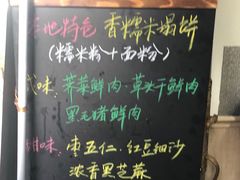 本地特色 香糯米塌饼
(糯米粉+面粉)
咸味:荠菜鲜肉·草头干鲜肉
黑毛猪鲜肉
甜味:枣五仁.红豆细沙
浓香黑芝麻